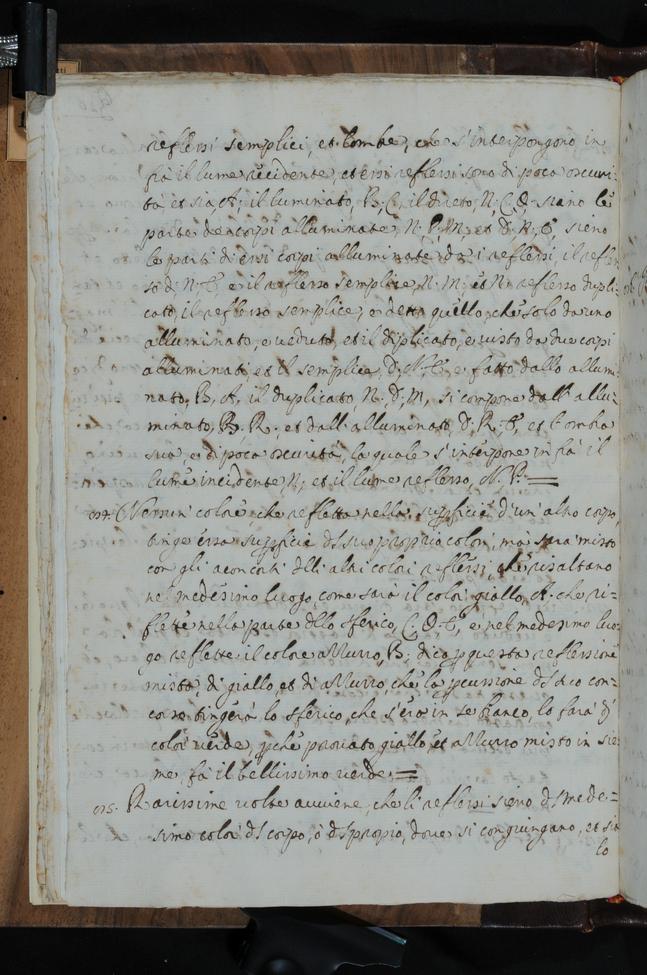 reflessi semplici, et l'ombre, che s'interpongono in
fra il lume incidente, et essi reflessi sono di poca oscuri=
tà, et sia, A, il luminato, B, C, il diretto, N, C, D, siano le
parte de corpi alluminate, N, P, M, et D, N, E, sieno
le parti di essi corpi alluminate da i reflessi, il refles=
so d, N, E, è il reflesso semplice, N. M, et N, reflesso dupli=
cato, il reflesso semplice, è detto quello, che solo da uno
alluminato, è veduto, et il duplicato, è visto da due corpi
alluminati, et il semplice, D, N, E, è fatto dallo allumi=
nato, B, A, il duplicato, N, D, M, si compone dall' allu=
minato, B, R, et dall' alluminato, D, R, E, et l'ombra
sua, è di poca oscurità, la quale s'interpone infra il
lume incidente, N, et il lume reflesso, N. P. =
Nessun colore, che refletta nella supficie d'un' altro corpo,
tinge essa supficie del suo proprio colore, ma sarà misto
con gli concorsi delli altri colori reflessi, che risaltano
nel medesimo luogo, come sarà il color giallo, A, che ri=
flette nella parte dello sferico, C, D, E, e nel medesimo luo=
go reflette il colore azzurro, B, dico p questa reflessione
mista, di giallo, et di azzurro, che la pcussione del suo con=
corso tingerà lo sferico, che s'era in se bianco, lo farà di
color verde, pche provato giallo, et azzurro misto in sie=
me fa il bellissimo verde =
Rarissime volte avviene, che li reflessi sieno del mede=
simo color del corpo, ò del proprio, dove si congiungano, et sia
lo